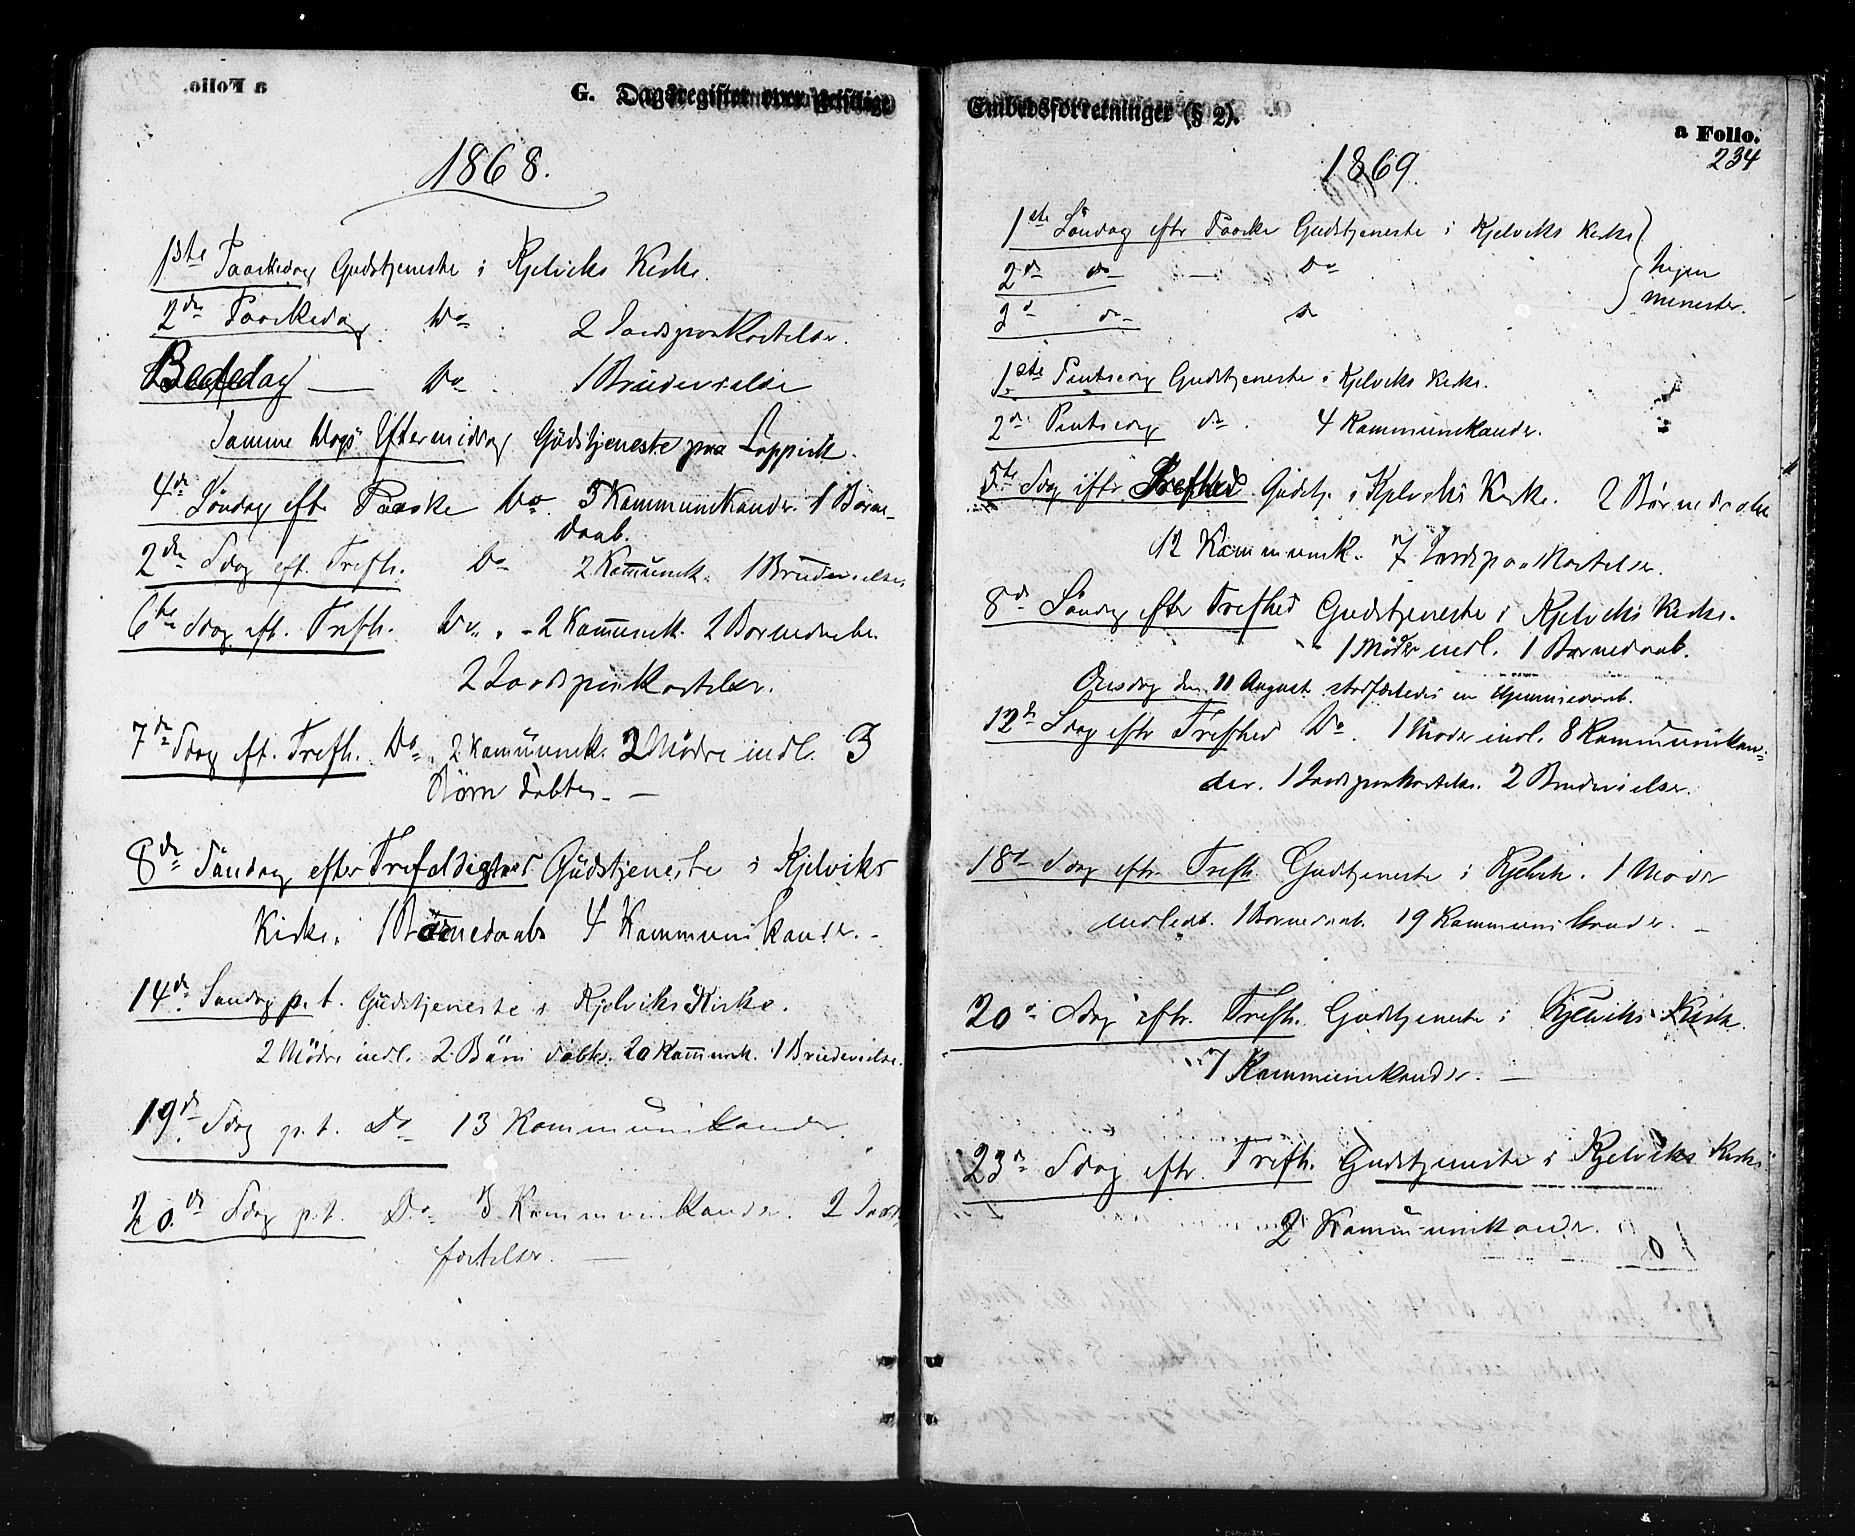 a Folio.
G. Dagsregister over Geistlige
1868.
1ste Paaskedag Gudstjeneste i Kjelviks Kirke.
2den Paaskedag Do 2 Jordspaakastelser.
Bededag — Do 1 Brudevielse
Samme Dags Eftermiddag Gudstjeneste paa
4de Søndag eft. Paaske Do 5 Kommunikander. 1 Barne-
daab.
2den Sdag eft. Trefh. Do 2 Kommunik. 1 Brudevielse.
6te Sdag eft. Trefh. Do. - 2 Kommunik. 2 Barnedaabe.
2 Jordspaakastelser.
7de Sdag eft. Trefh. Do. 2 Kommunik. 2 Mødre indl. 3
Børn døbte. —
8de Søndag efter Trefoldighed Gudstjeneste i Kjelviks
Kirke. 1 Barnedaab 4 Kommunikander. -
14de Søndag p. t. Gudstjeneste i Kjelviks Kirke.
2 Mødre indl. 2 Børn døbte. 20 Kommunik. 1 Brudevielse.
19de Sdag p. t. Do 13 Kommunikander.
20de Sdag p. t. Do 3 Kommunikander. 2
fæstelser. —
Embedsforretninger (§ 2).
a Folio.
234
1869.
1ste Søndag eftr Paaske Gudstjeneste i Kjelviks Kirke
2de do — Do
3d do do
Ingen
menester.
1ste Pintsedag Gudstjeneste i Kjelviks Kirke.
2den Pintsedag do. 4 Kommunikander.
5te Sdag eftr Trefhed Gudstj. i Kjelviks Kirke. 2 Barnedaabe
12 Kommunik. 7 Jordspaakastelser.
8de Søndag efter Trefhed Gudstjeneste i Kjelviks Kirke.
1 Moder indl. 1 Barnedaab.
Onsdag den 11 August stadfæstedes en Hjemmedaab.
12te Sdag eftr Trefhed Do. 1 Moder indl. 8 Kommunikan-
der. 1 Jordspaakastelse. 2 Brudevielser.
18de Sdag eftr. Trefh Gudstjeneste i Kjelvik. 1 Moder
indledt. 1 Barnedaab. 19 Kommunikander. -
20de Sdag eftr. Trefh. Gudstjeneste i Kjelviks Kirk.
7 Kommunikander. —
23de Sdag eftr. Trefh. Gudstjeneste i Kjelviks Kirke
2 Kommunikander.